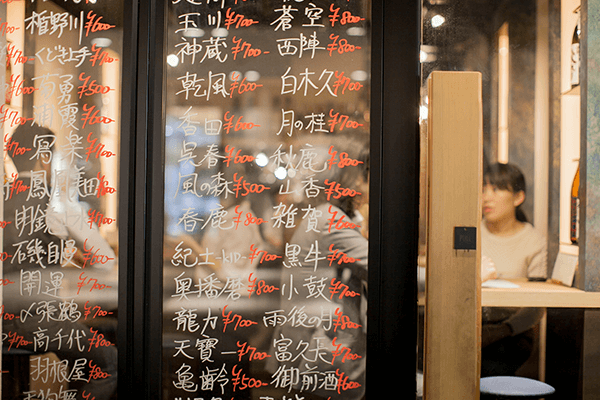 植野川 ¥600
くどき上手 ¥700
南勇 ¥500
清霞 ¥800
寫楽 ¥700
鳳凰美田 ¥800
明鏡
磯自慢 ¥900
開運 ¥700
〆張鶴 ¥700
高千代 ¥800
羽根屋 ¥800
玉川 ¥700
神蔵 ¥700
乾風 ¥600
香田 ¥600
呉春 ¥600
風の森 ¥500
春鹿 ¥800
紀土-kid- ¥700
奥播磨 ¥800
龍力 ¥700
天寶一 ¥700
亀齢 ¥500
蒼空 ¥800
西陣 ¥800
白木久 ¥700
月の桂 ¥700
秋鹿 ¥800
山香 ¥500
雑賀 ¥600
黒牛 ¥700
小鼓 ¥700
雨後の月 ¥800
富久長 ¥700
御前酒 ¥600